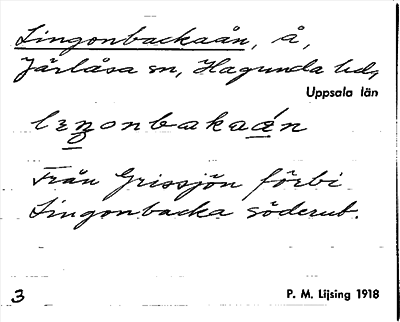 Lingonbackaån, å,
Järlåsa sn, Hagunda hd,
Uppsala län
Från Grissjön förbi
Lingonbacka söderut.
3 P. M. Lijsing 1918